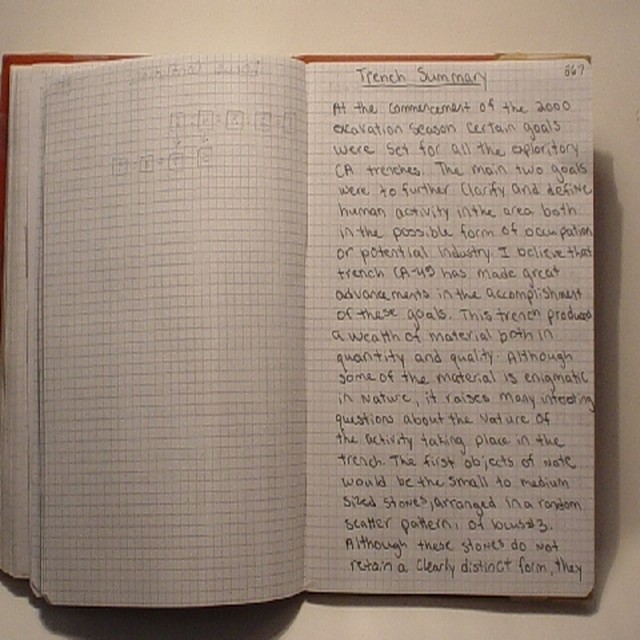 Trench Summary
367
At the commencement of the 2000
excavation season certain goals
were set for all the exploritory
CA trenches. The main two goals
were to further clarify and define
human activity in the area both
in the possible form of occupation
or potential industry. I believe that
trench CA-45 has made great
advancements in the accomplishment
of these goals. This trench produced
a wealth of material both in
quantity and quality. Although
some of the material is enigmatic
in nature, it raises many interesting
questions about the nature of
the activity taking place in the
trench. The first objects of note
would be the small to medium
sized stones, arranged in a random
scatter pattern, of locus 3.
Although these stones do not
retain a clearly distinct form, they